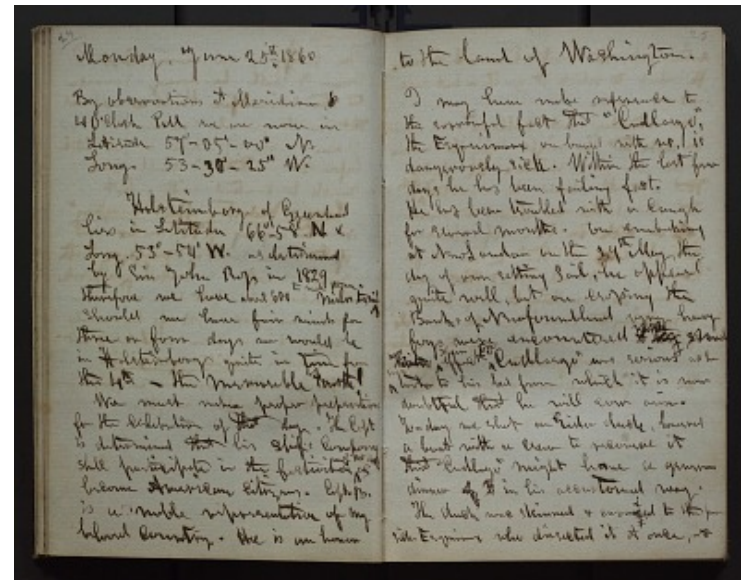 24
Monday, June 25th 1860
By observations at Meridian &
4 O'Clock P.M. we are now in
Latitude 57°-05'-00" N.
Long. 53-30-25" W.
Holsteinborg of Greenland
lies in Latitude 66°-58' N &
Long. 53°-54' W. as determined
by Sir John Ross in 1829
therefore we have about 600 miles to sail
Should we have fair winds for
three or four days we would be
in Holsteinborg quite in time for
the 4th – the memorable Fourth!
We must make proper preparation
for the celebration of that day. The Capt.
is determined that his Ship's Company
shall participate in the festivities
become American Citizens. Capt. B.
is a noble representative of my
beloved Country. He is an honor
25
to the land of Washington.
I may have made reference to
the sorrowful fact that "Cudlargo",
the Esquimaux on board with us, is
dangerously sick. Within the last few
days he has been failing fast.
He has been troubled with a cough
for several months. On embarking
at New London on the 29th May, the
day of our setting Sail, he appeared
quite well, but on crossing the
Banks of Newfoundland heavy
fogs were encountered
"Cudlargo" was
to his bed from which it is now
doubtful that he will ever arise.
To day we shot an Eider duck, lowered
a boat with a crew to secure it
that "Cudlargo" might have a
dinner of it in his accustomed way.
The duck was skinned & to the
sick Esquimaux who dissected it at once,